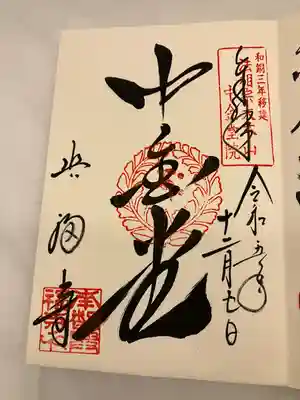 和銅三年移建
奉拝
令和五年
十二月七日
中金堂
興福寺